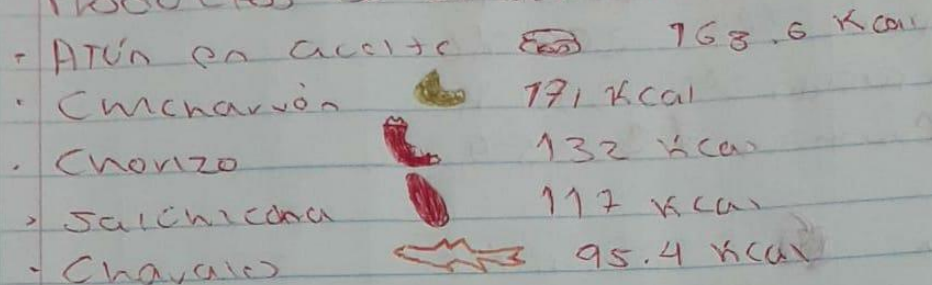 - Atún en aceite 163.6 Kcal
· Chicharrón 171 Kcal
· Chorizo 132 Kcal
· Salchicha 117 Kcal
- Charales 95.4 Kcal